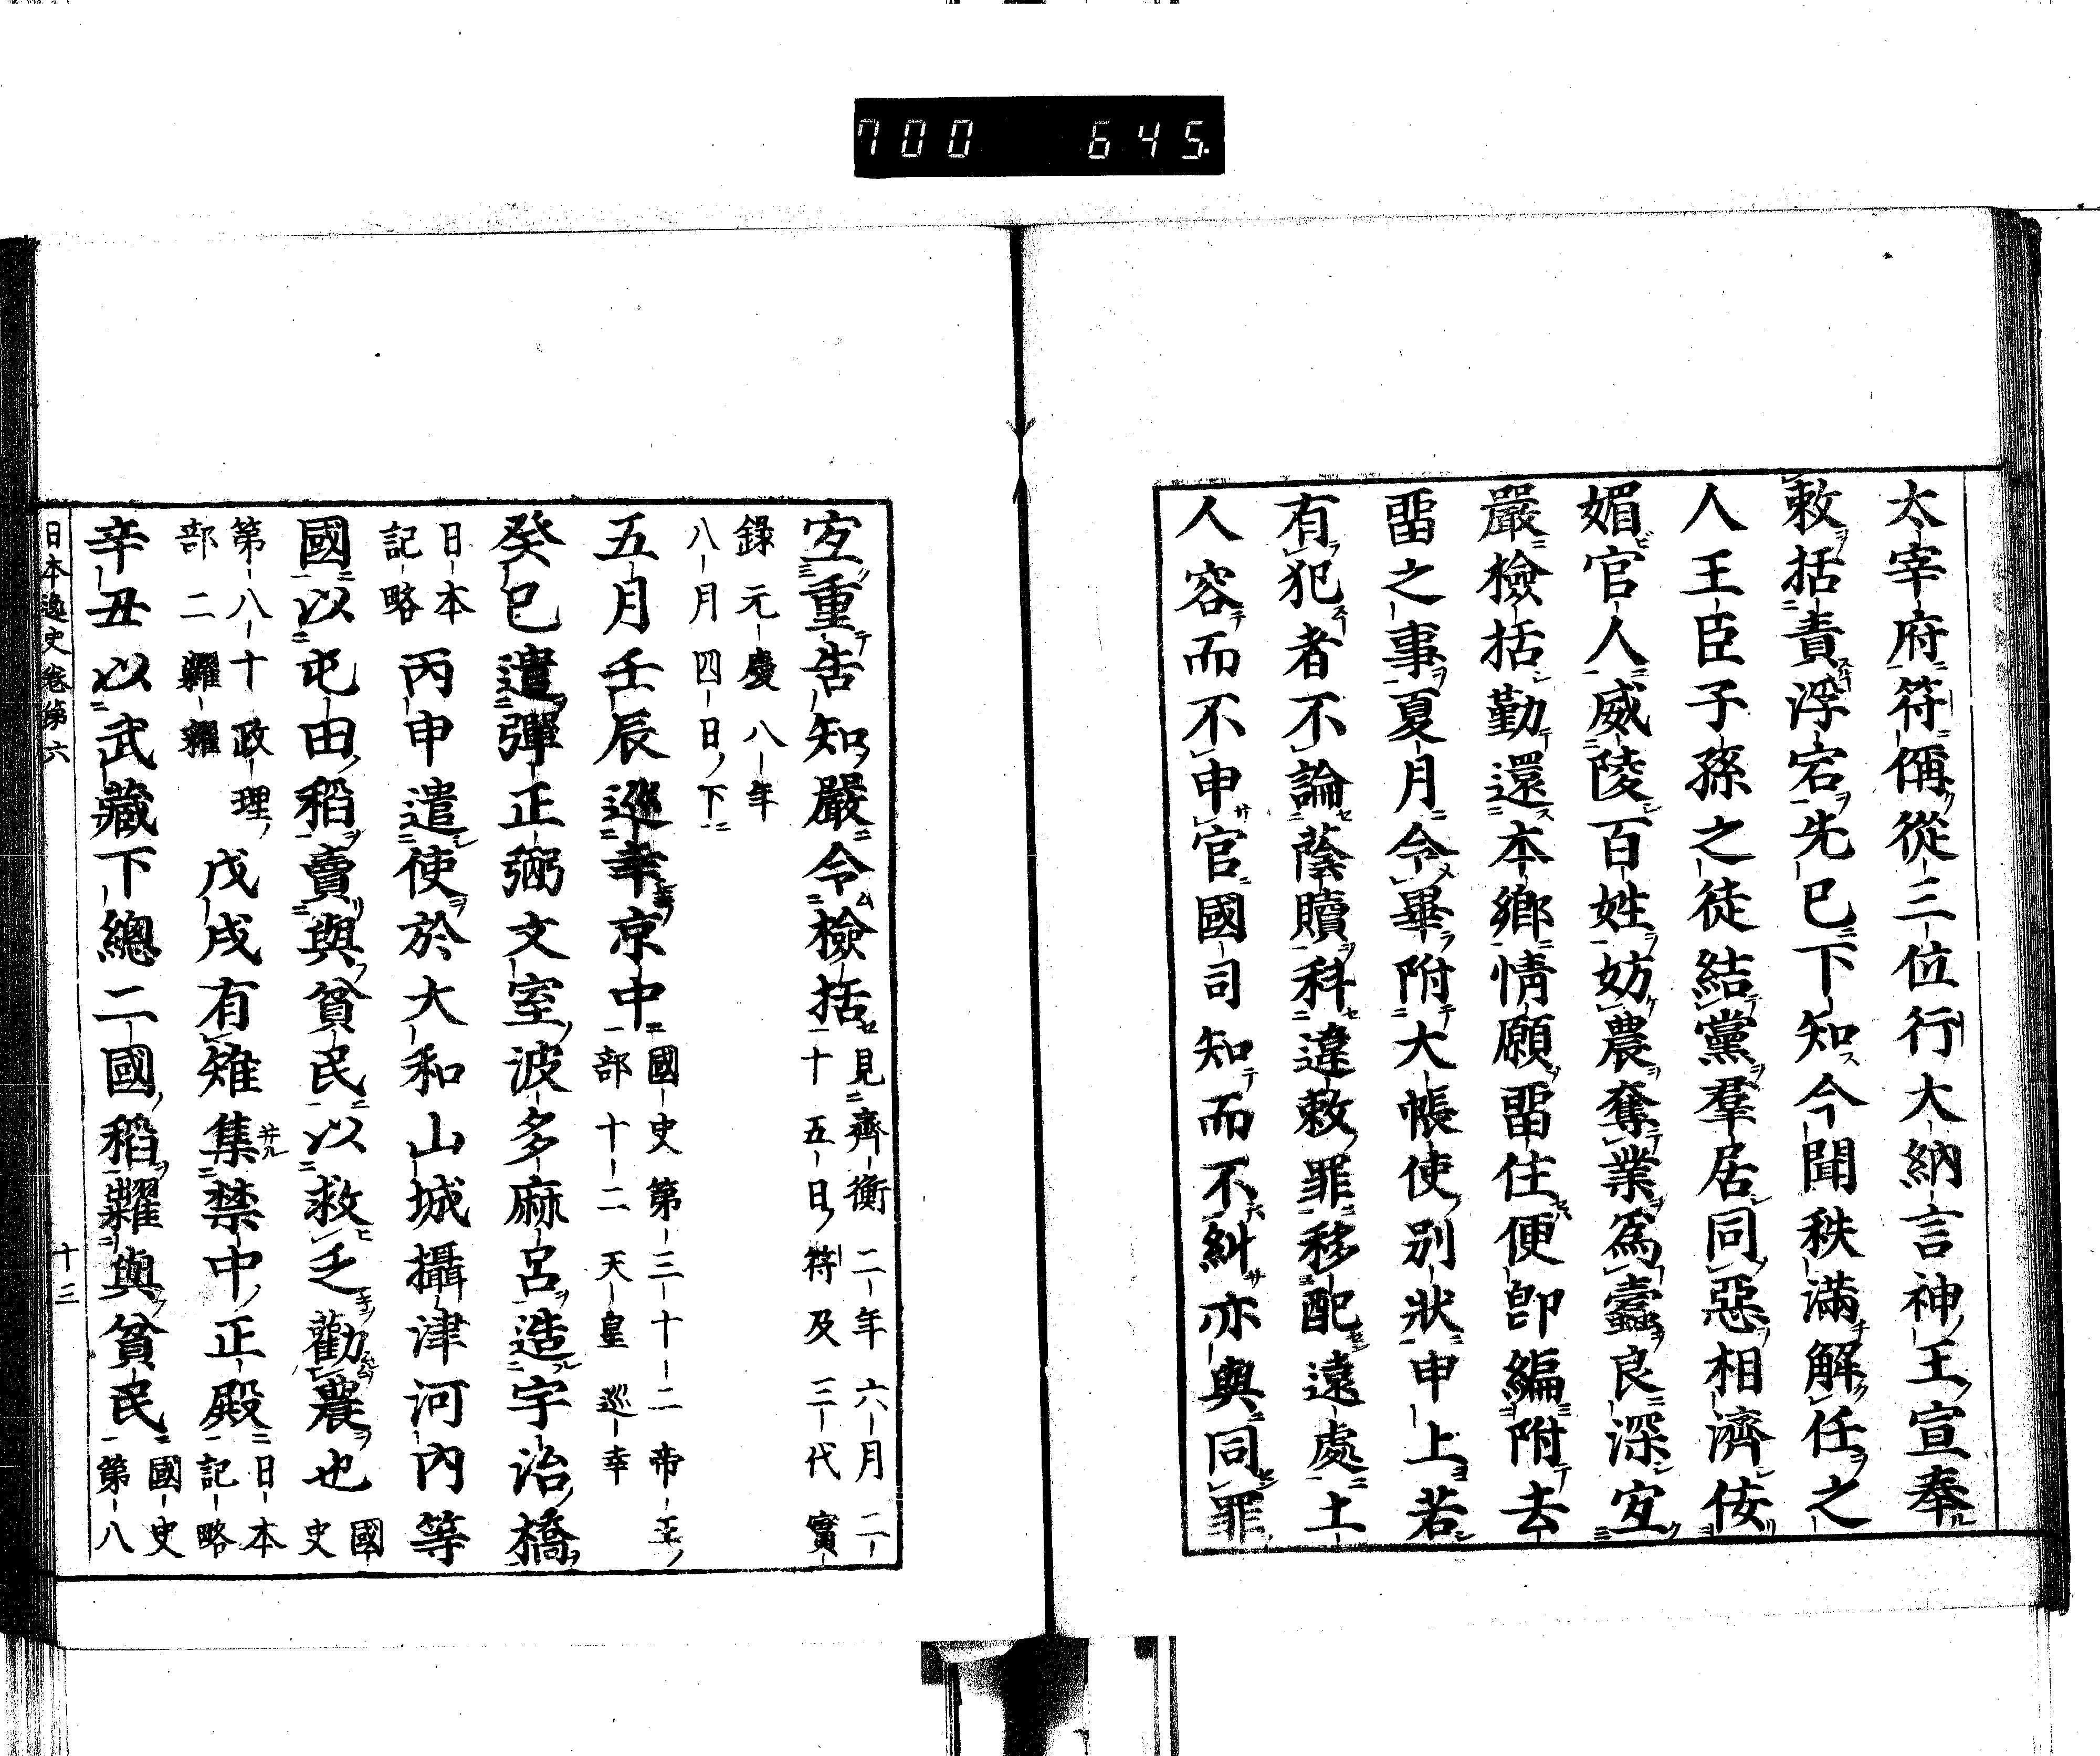 700 645.
太宰府符偁從三位行大納言神王宣奉
敕括責浮宕先已下知今聞秩滿解任之
人王臣子孫之徒結黨羣居同惡相濟侫
媚官人威陵百姓妨農奪業爲蠧良深宐
嚴檢括勤還本鄉情願畱住便卽編附去
畱之事夏月令畢附大帳使別狀申上若
有犯者不論蔭贖科違敕罪移配遠處土
人容而不申官國司知而不糾亦與同罪
宐重告知嚴令檢括見齊衡二年六月二
十五日符及三代實
錄元慶八年
八月四日下
五月壬辰巡幸京中國史第三十二帝王
部十二天皇巡幸
癸巳遣彈正弼文室波多麻呂造宇治橋
日本
記略丙申遣使於大和山城攝津河內等
國以屯田稻賣與貧民以救乏勸農也國
史
第八十政理
部二糶糴戊戌有雉集禁中正殿日本
記略
辛丑以武藏下總二國稻糶與貧民國史
第八
日本逸史卷第六 十三